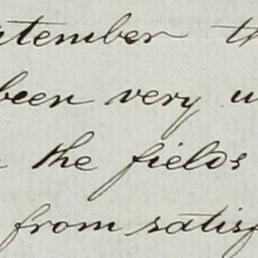 ptember th
been very u
the fields
from satisf